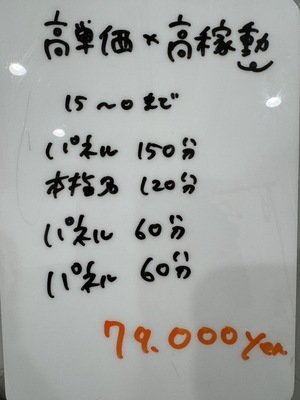 高単価×高稼動
15〜0まで
パネル 150分
本指名 120分
パネル 60分
パネル 60分
79.000Yen